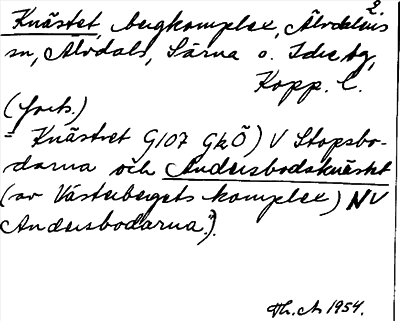 2.
Knästet, bergkomplex, Älvdalens
sn, Älvdals, Särna o. Idre tg,
Kopp. l.
(forts.)
= Knästret G107 GkÖ) V Stopsbo-
darna och Andersbodsknästet
(av Västerbergets komplex) NV
Andersbodarna").
Th. A 1954.